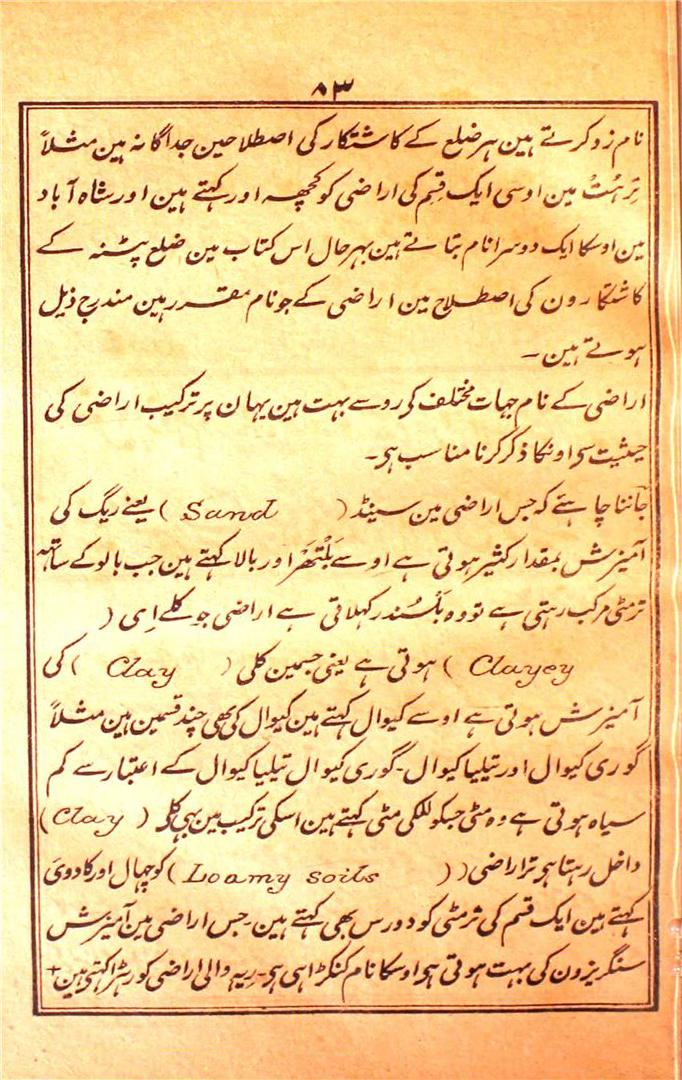 ۸۳
نام زد کرتے ہین ہر ضلع کے کاشتکار کی اصطلاحین جداگانہ ہین مثلاً
تِرہُتْ مین اوسی ایک قِسم کی اراضی کو کچھہ اور کہتے ہین اور شاہ آباد
مین اوسکا ایک دوسرا نام بتاتے ہین بہرحال اس کتاب مین ضلع پٹنہ کے
کاشتکارون کی اصطلاح مین اراضی کے جو نام مقرر ہین مندرج ذیل
ہوتے ہین ـ
اراضی کے نام جہات مختلف کی رو سے بہت ہین یہان پر ترکیب اراضی کی
حیثیت سی اونکا ذکر کرنا مناسب ہی ـ
جاننا چاہئے کہ جس اراضی مین سینڈ ( Sand ) یعنے ریگ کی
آمیزش بمقدار کثیر ہوتی ہے اوسے بَلْتھَر اور بالا کہتے ہین جب بالو کے ساتھہ
ترمٹی مرکب رہتی ہے تو وہ بَلْسُندر کہلاتی ہے اراضی جو کلے اِی (
Clayey ) ہوتی ہے یعنی جسمین کلی ( Clay ) کی
آمیزش ہوتی ہے اوسے کیوال کہتے ہین کیوال کی بھی چند قسمین ہین مثلاً
گوری کیوال اور تیلیا کیوال ـ گوری کیوال تیلیا کیوال کے اعتبار سے کم
سیاہ ہوتی ہے وہ مٹی جسکو للکی مٹی کہتے ہین اسکی ترکیب مین بہی کلی ( Clay )
داخل رہتا ہی تر اراضی ( ( Loamy soils ) کو چہال اور کادوی
کہتے ہین ایک قسم کی ترمٹی کو دورس بھی کہتے ہین ـ جس اراضی مین آمیزش
سنگریزون کی بہت ہوتی ہی اوسکا نام کنکڑاہی ہی ـ رِیہ والی اراضی کو رہٹرا کہتی ہین +